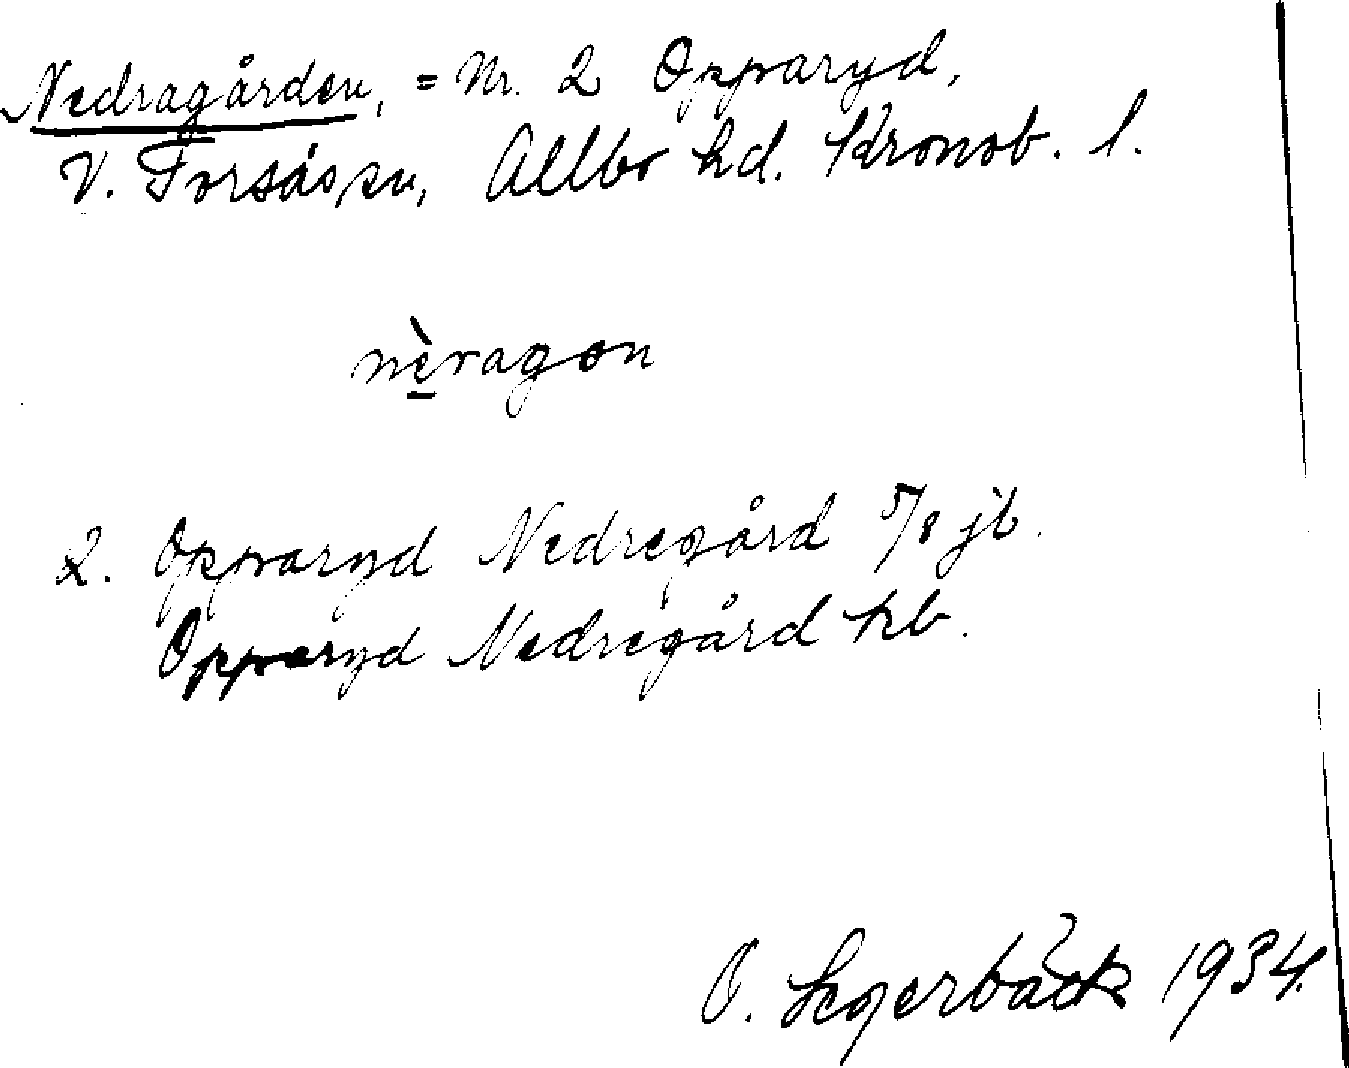 Nedragården, = Nr. 2 Opparyd,
V. Torsås sn, Allbo hd. Kronob. l.
nèragon
2. Opparyd Nedregård 5/8 jb.
Opparyd Nedregård kb.
O. Legerbäck 1934.